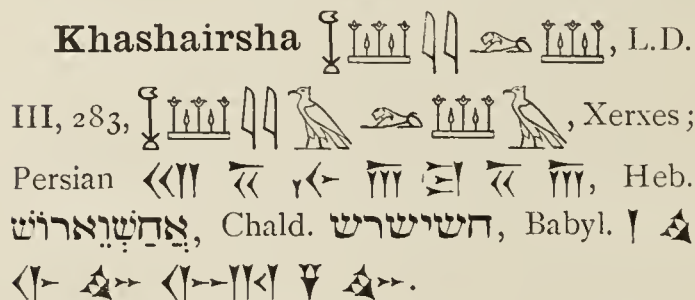 Khashairsha 𓆼𓆷𓇋𓇋𓃭𓆷, L.D.
III, 283, 𓆼𓆷𓇋𓇋𓄿𓃭𓆷𓄿, Xerxes;
Persian 𐎧𐏁𐎹𐎠𐎼𐏁𐎠, Heb.
אֲחַשְׁוֵארוֹשׁ, Chald. חשישרש, Babyl.